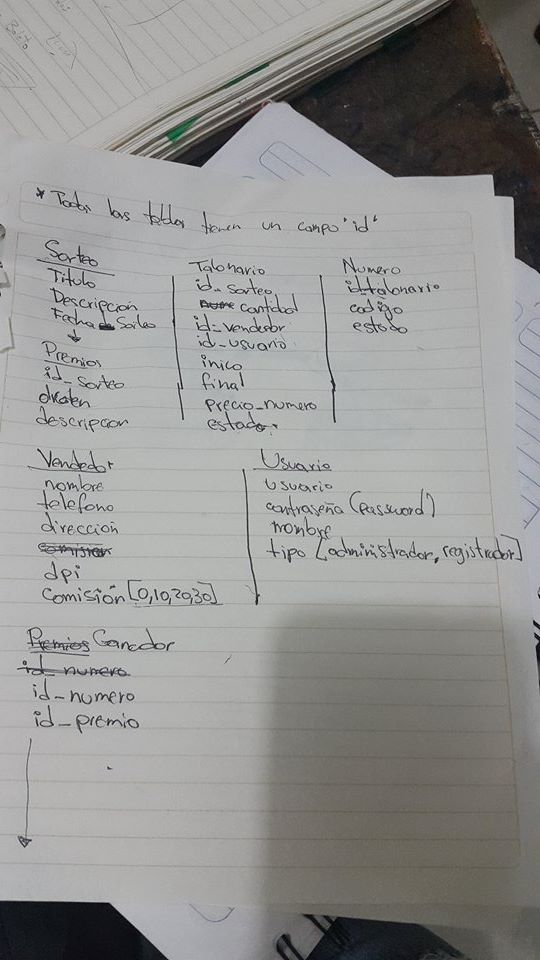 * Todas las tablas tienen un campo "id"
Sorteo
Titulo
Descripción
Fecha Sorteo
Premios
id_sorteo
orden
descripcion
Talonario
id_sorteo
cantidad
id_vendedor
id_usuario
inico
final
precio_numero
estado
Numero
id_talonario
codigo
estado
Vendedor
nombre
telefono
dirección
comision
dpi
Comisión [0,10,20,30]
Usuario
usuario
contraseña (password)
nombre
tipo [administrador, registrador]
Premios Ganador
id_numero
id_numero
id_premio